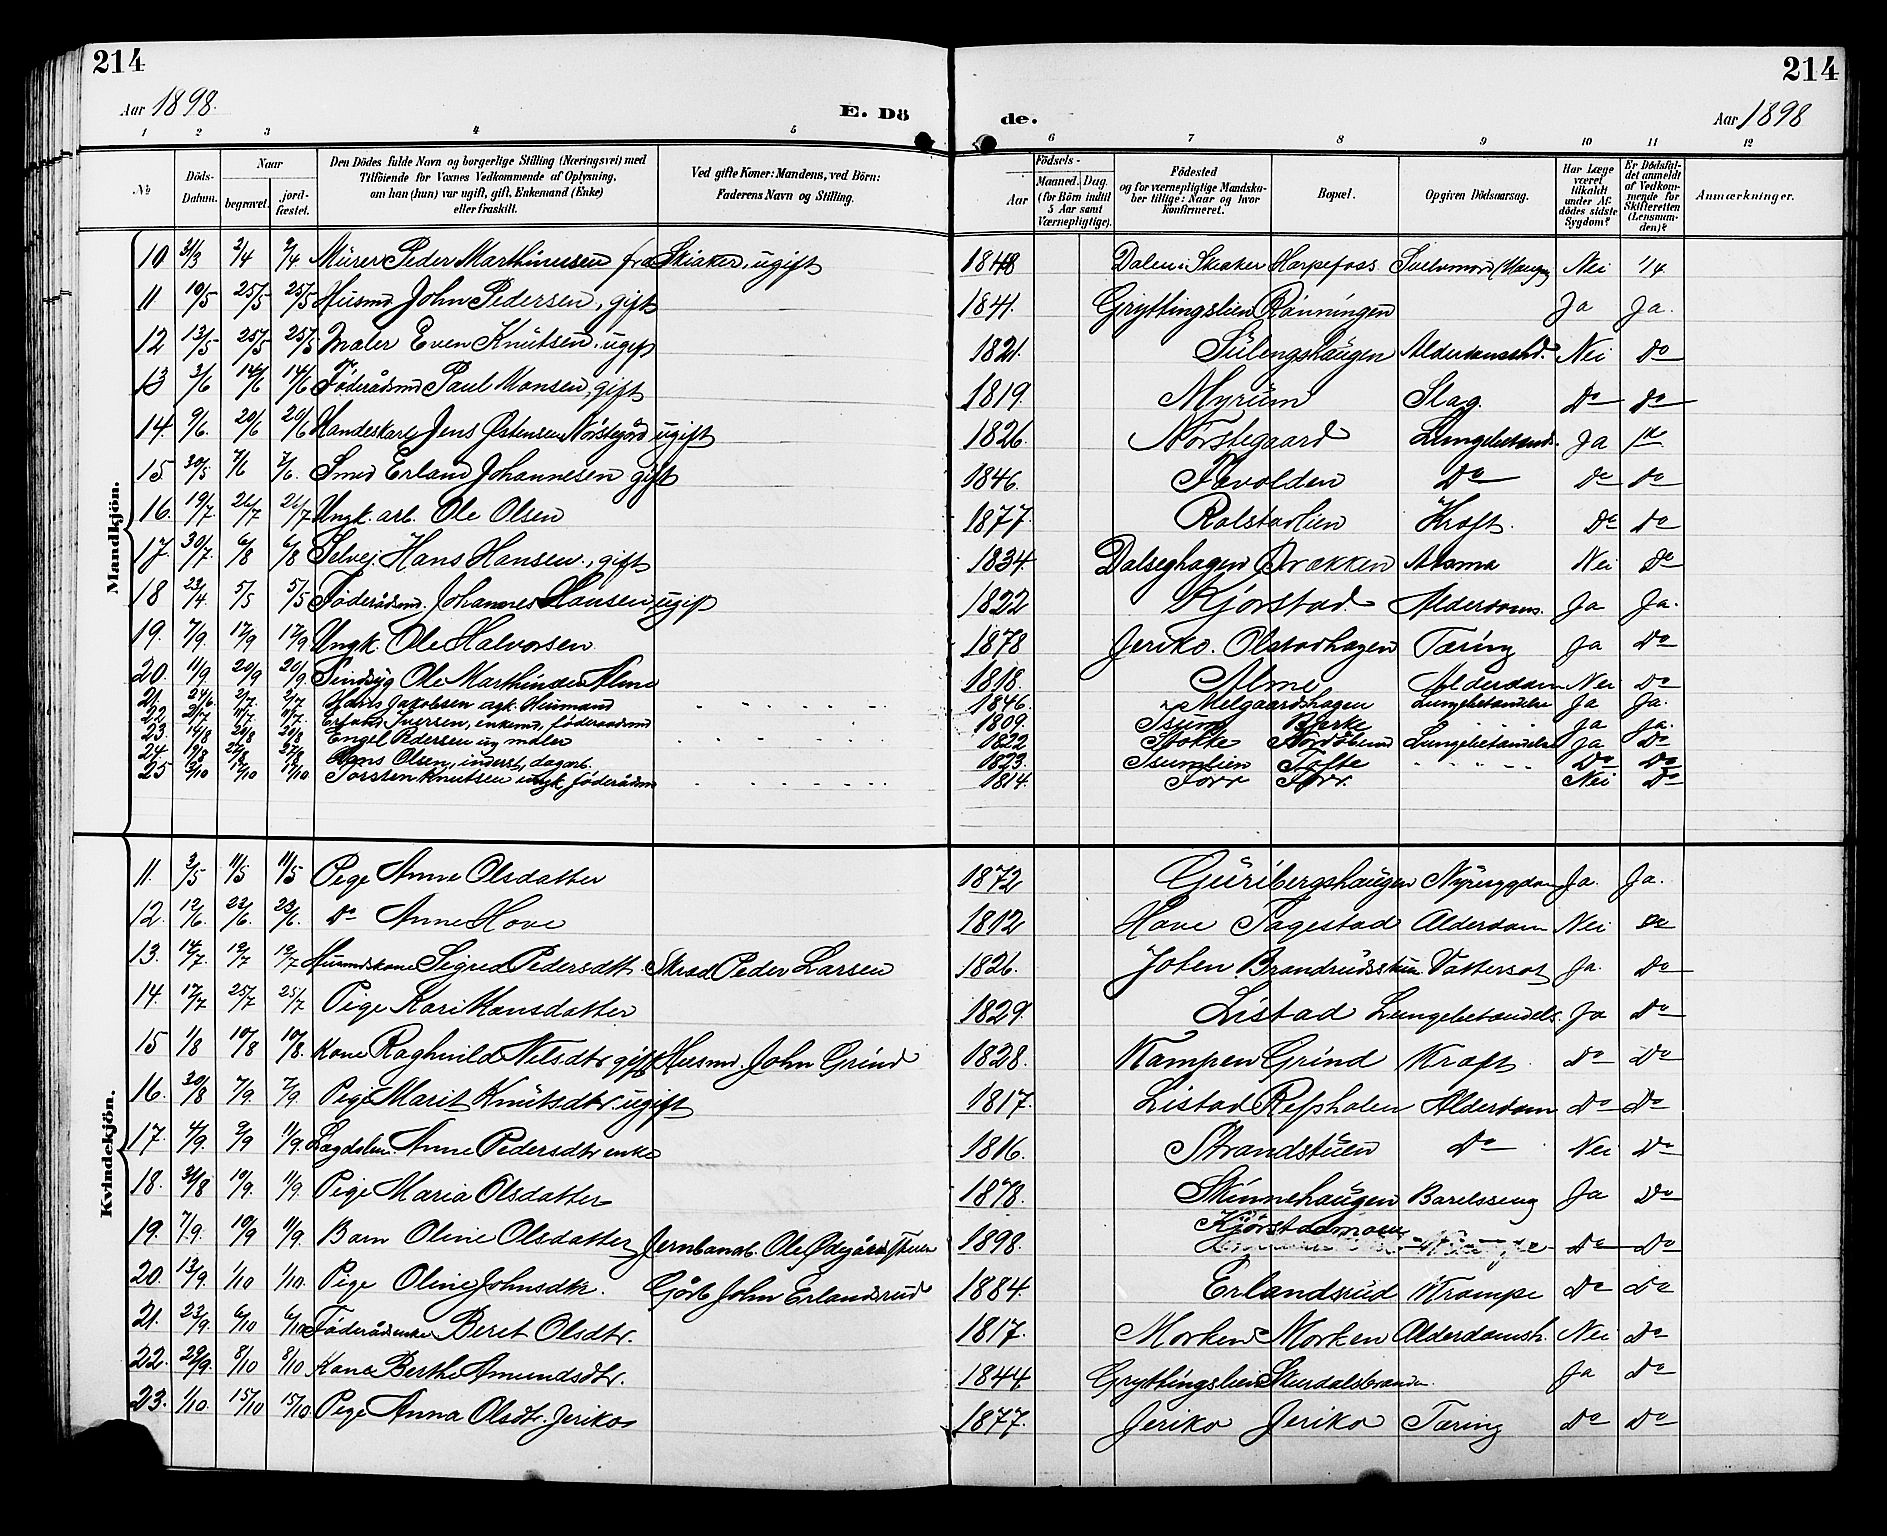 214
214
Aar 1898.
E. Dö
de.
Aar 1898
1 2 3 4 5 6 7 8 9 10 11 12
No
Döds-Datum.
Naar
begravet.
jord-fæstet.
Den Dödes fulde Navn og borgerlige Stilling (Næringsvei) med Tilföiende for Voxnes Vedkommende af Oplysning, om han (hun) var ugift, gift, Enkemand (Enke) eller fraskilt.
Ved gifte Koner: Mandens, ved Börn: Faderens Navn og Stilling.
Födsels-
Aar
Maaned. Dag.
(for Börn indtil 5 Aar samt Værnepligtige).
Födested og for værnepligtige Mandska-ber tillige: Naar og hvor konfirmeret.
Bopæl.
Opgiven Dödsaarsag.
Har Læge været tilkaldt under Af-dödes sidste Sygdom?
Er Dödsfal-det anmeldt af Vedkom-mende for Skifteretten (Lensman-den)?
Anmærkninger.
Mandkjön.
10 31/3 2/4 2/4 Mürer Peder Marthinusen fra Skiaker, ugift 1848 Dalen i Skiaker Harpefoss Selvmord Nei 1/4
11. 19/5 25/5 25/5 Husmd John Pedersen, gift 1841. Gryttingslien Rønningen Ja Ja.
12 13/5 25/5 25/5 Maler Even Knutsen, ugift 1821. Sülengshaugen Alderdomssvd. Nei Do
13 3/6 14/6 14/6 Føderådsmd Paul Monsen, gift 1819. Myrum Slag. Do Do
14. 9/6. 20/6 20/6 Handelskarl Jens Østensen Nørstegård ugift 1826. Nørstegaard Lungebetænd. Ja Do
15. 30/5 7/6 7/6. Smed Erland Johannesen gift 1846. Do Do Do
16. 19/7 26/7 26/7 Ungk. arb. Ole Olsen 1877. Rolstadlien Kræft. Do Do
17. 30/7. 6/8 6/8 Selvej. Hans Hansen, gift 1834. Dalseghagen Brækken Astma Nei Do
18 23/4 5/5 5/5 Føderådsmd. Johannes Hansen, ugift 1822 Kjørstad. Alderdoms. Ja Ja.
19. 7/9. 17/9 17/9 Ungk. Ole Halvorsen 1878 Jeriko. Olstadhagen Tæring Ja Do
20. 11/9 20/9 20/9. Sindsyg Ole Marthinsen Alme 1818. Alme Alderdom Nei Do
21. 24/6. 2/7. 2/7 Hans Jakobsen Husmand 1846. Melgaardshagen Lungebetændelse Ja Ja.
22. 11/7. 11/7. Erland Iversen, enkemd, føderaadsmd 1809. Isum Bjerke Ja Ja.
23. 14/8 20/8 20/8 Engel Pedersen ug maler 1822 Lungebetændelse Ja Do
24. 19/8 27/8 27/8 Hans Olsen, inderst, dagarb. 1823. Isumlien Tofte Do Do
25 3/10 12/10 12/10 Torsten Knutsen ungk, føderådsm 1814. Forr Forr. Nei Do
Kvindekjön.
11. 3/5 11/5 11/5 Pige Anne Olsdatter 1872 Guribergshaugen Nyresygdom Ja. Ja.
12. 12/6. 22/6. 22/6. Do Anne Hove 1812 Hove Fagestad Alderdom Nei Do
13. 14/7. 19/7 19/7 Husmdskone Sigrid Pedersdtr. Peder Larsen 1826. Joten Brandrudsstuen Vattersot Ja. Do
14. 17/7 25/7 25/7 Pige Kari Hansdatter 1829. Listad Lungebetændels. Ja Do
15 1/8 10/8 10/8. Kone Raghnild Nilsdtr gift Husmd. John Grind 1828. Kampen Grind Kræft. Do Do
16. 30/8 7/9. 7/9. Pige Marit Knutsdtr. ugift 1817. Listad Refsholen Alderdom Do Do
17. 4/9. 9/9 11/9. Lægdslem Anne Pedersdtr enke 1816. Strandstuen Do Nei Do
18. 31/8 10/9. 11/9. Pige Maria Olsdatter 1878. Skinnehaugen Barelsseng Ja Do
19. 7/9. 10/9 11/9. Barn Oline Olsdatter Jernbanarb. Ole Ødegårdstuen 1898. Kjørstadmoen Do Do
20. 13/9. 1/10 1/10. Pige Oline Johnsdtr. Gårb John Erlandsrud 1884. Erlandsrud Krampe Do Do
21. 23/9. 6/10 6/10 Føderådsenke Beret Olsdtr. 1817. Morken Morken Alderdomssh. Nei Do
22. 29/9. 8/10 8/10 Kone Berthe Amundsdtr. 1844. Gryttingslien Skurdalsbranden. Ja Do
23. 1/10. 15/10 15/10. Pige Anna Olsdtr. Jeriko 1877. Jeriko Jeriko Tæring Do Do